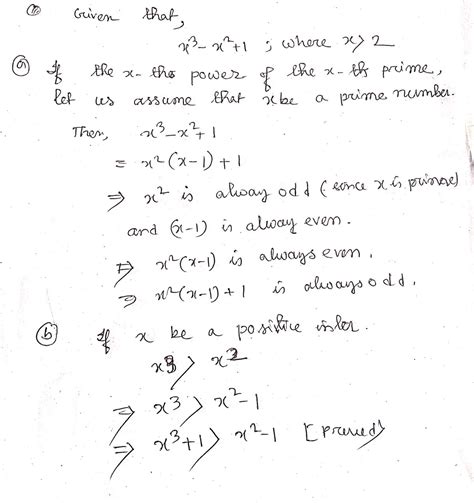 ① Given that,
x³ - x² + 1 ; where x > 2
ⓐ If the x-the power of the x-th prime,
let us assume that x be a prime number.
Then, x³ - x² + 1
= x² (x-1) + 1
⇒ x² is alway odd (since x is prime)
and (x-1) is alway even.
⇒ x²(x-1) is always even.
⇒ x²(x-1) + 1 is always odd.
ⓑ If x be a positive
x³ > x²
⇒ x³ > x² - 1
⇒ x³ + 1 > x² - 1 [proved]